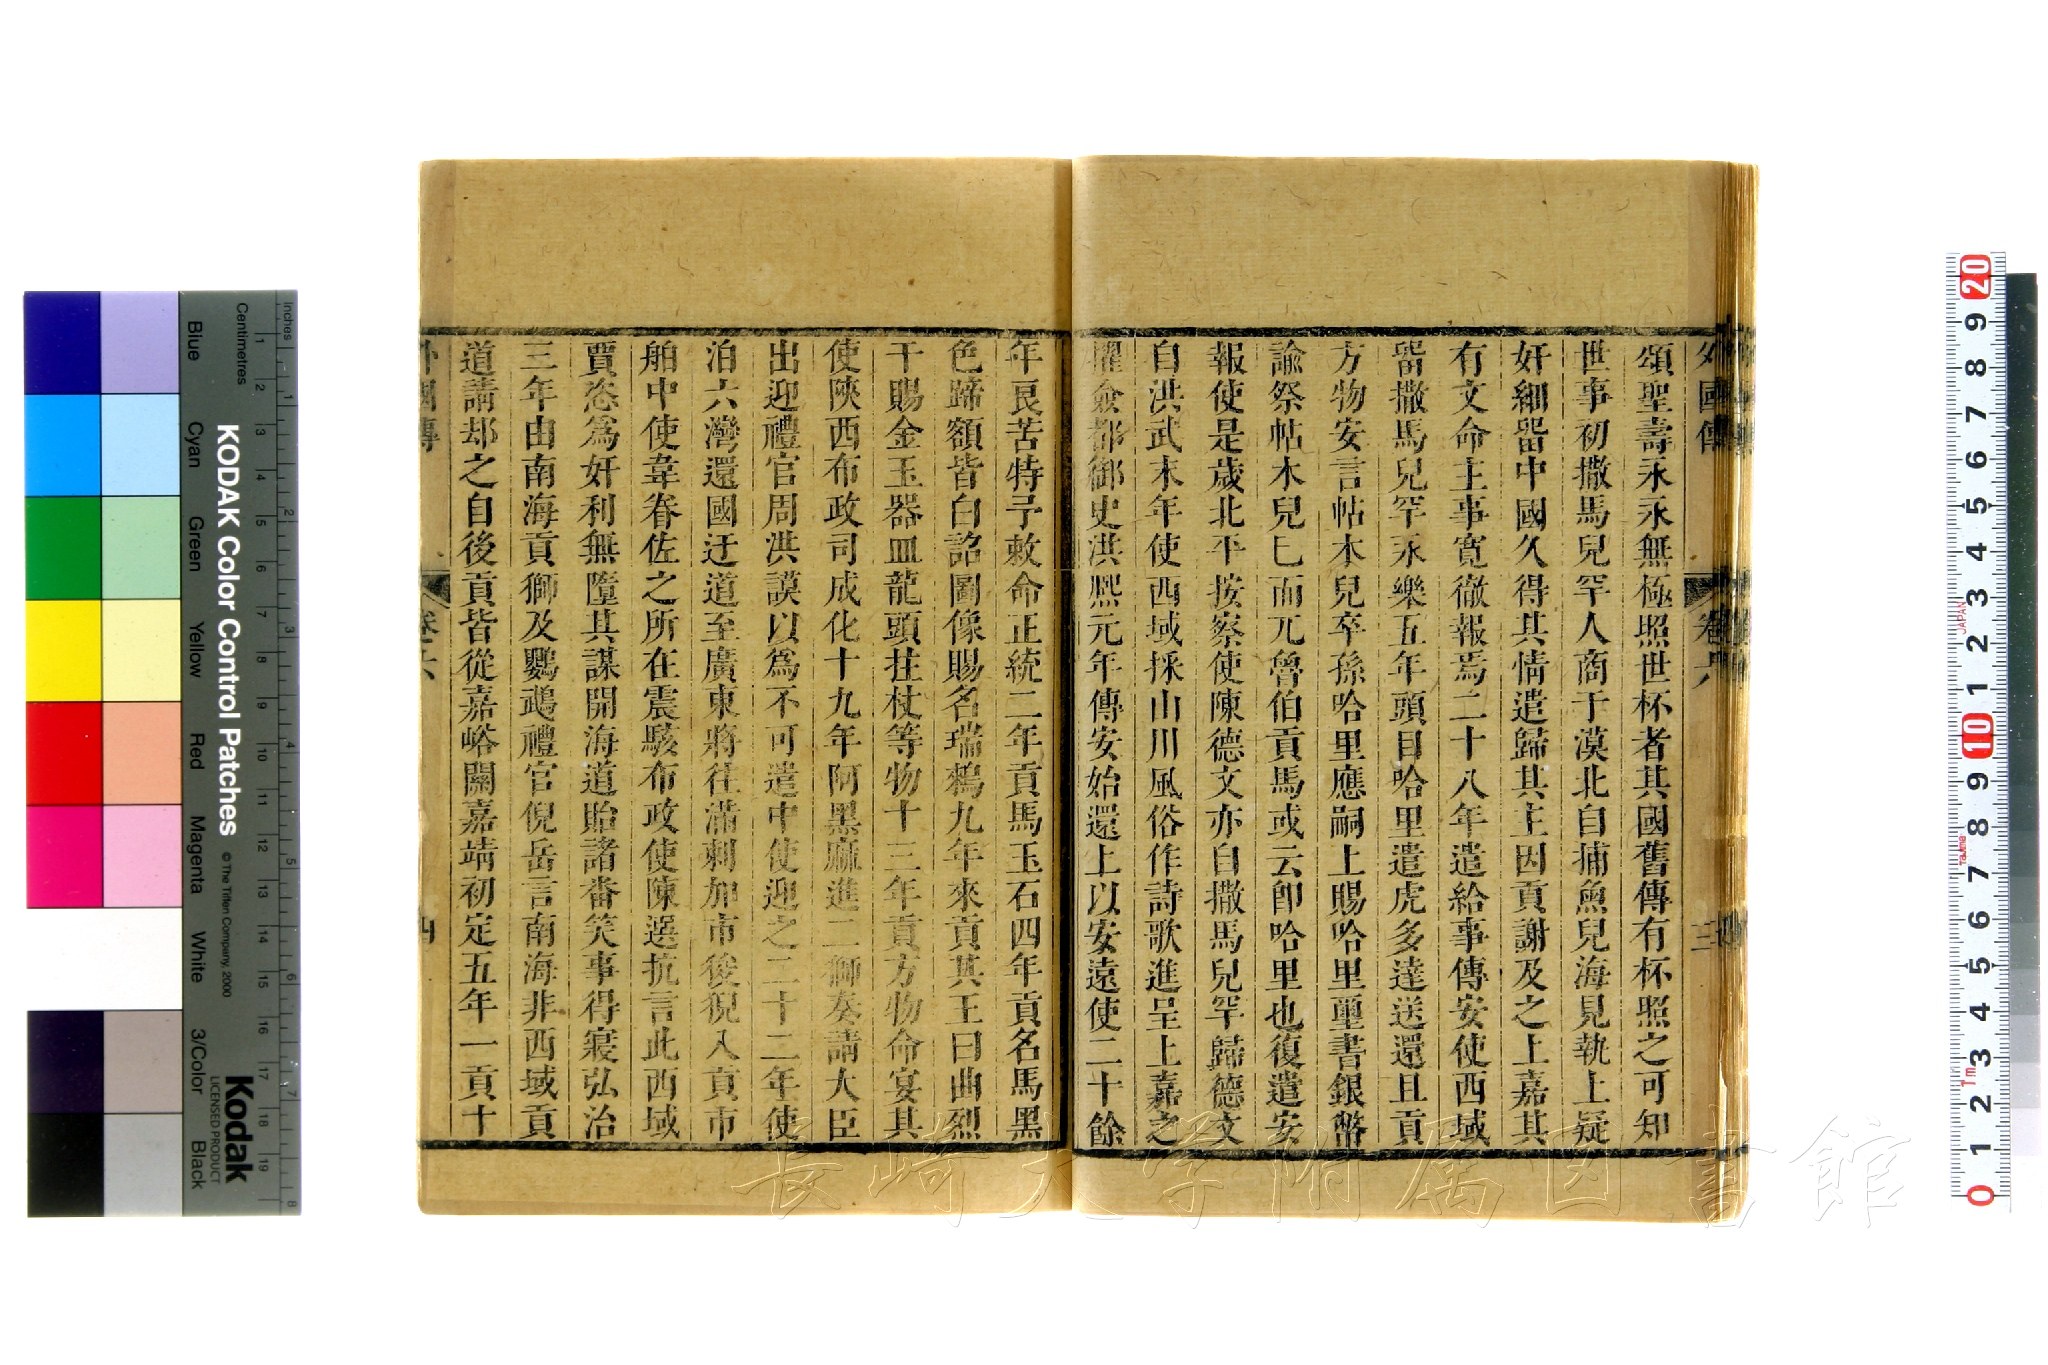 外國傳
卷六
三
頌聖壽永永無極照世杯者其國舊傳有杯照之可知
世事初撒馬兒罕人商于漠北自捕魚兒海見執上疑
奸細畱中國久得其情遣歸其主因貢謝及之上嘉其
有文命主事寬徹報焉二十八年遣給事傳安使西域
畱撒馬兒罕永樂五年頭目哈里遣虎多達送還且貢
方物安言帖木兒卒孫哈里應嗣上賜哈里璽書銀幣
諭祭帖木兒已而兀魯伯貢馬或云卽哈里也復遣安
報使是歲北平按察使陳德文亦自撒馬兒罕歸德文
自洪武末年使西域採山川風俗作詩歌進呈上嘉之
擢僉都御史洪熙元年傳安始還上以安遠使二十餘
年艮苦特予敕命正統二年貢馬玉石四年貢名馬黑
色蹄額皆白詔圖像賜名瑞鶙九年來貢其王曰曲烈
干賜金玉器皿龍頭拄杖等物十三年貢方物命宴其
使陝西布政司成化十九年阿黑麻進二獅奏請大臣
出迎禮官周洪謨以爲不可遣中使迎之二十二年使
泊六灣還國迂道至廣東將往滿剌加市後猊入貢市
舶中使韋眷佐之所在震駭布政使陳選抗言此西域
賈恣爲奸利無墮其謀開海道貽諸畨笑事得寢弘治
三年由南海貢獅及鸚鵡禮官倪岳言南海非西域貢
道請却之自後貢皆從嘉峪關嘉靖初定五年一貢十
外國傳
卷六
四
KODAK Color Control Patches
© The Tiffen Company, 2000
Kodak
LICENSED PRODUCT
Inches
Centimetres
Blue
Cyan
Green
Yellow
Red
Magenta
White
3/Color
Black
長崎大学附属図書館
JAPAN
1m